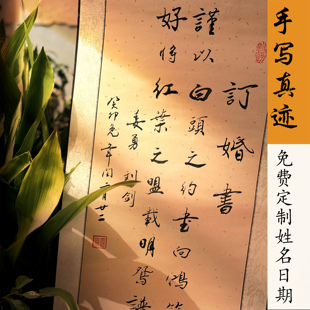 手写真迹
免费定制姓名日期
訂婚書
謹以白頭之約書向鴻笺
好将紅葉之盟載明鴛譜
姜勇 刘剑
癸卯兔年闰二月廿二